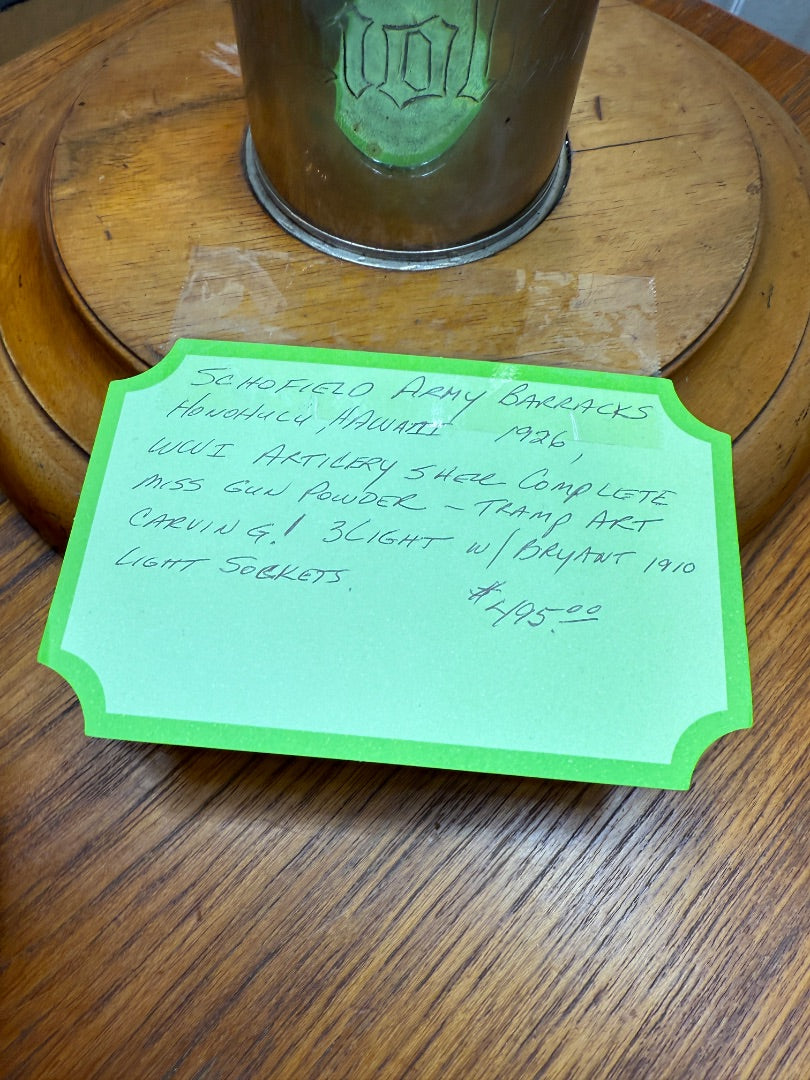 SCHOFIELD ARMY BARRACKS
HONOHULU, HAWAIII 1926,
WWI ARTILERY SHELL COMPLETE
MISS GUN POWDER - TRAMP ART
CARVING.! 3LIGHT W/BRYANT 1910
LIGHT SOCKETS.
$495.00